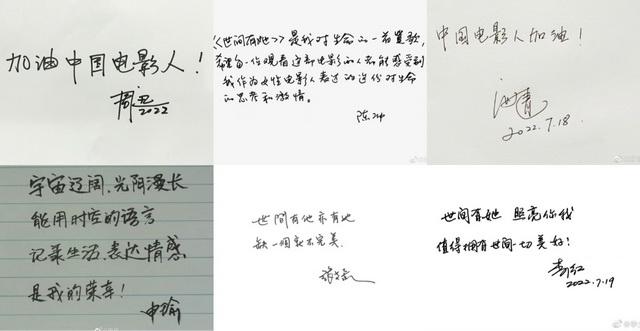 加油中国电影人!
周迅 2022
《世间有她》是我对生命的一首赞歌,
希望每一位观看这部电影的人都能感受到
我作为女性电影人表达的这份对生命
的思考和激情。
陈冲
中国电影人加油!
2022.7.18
宇宙辽阔、光阴漫长
能用时空的语言
记录生活、表达情感
是我的荣幸!
申瑜
世间有他亦有她
缺一個就不完美.
世间有她 照亮你我
值得拥有世间一切美好!
李红
2022.7.19